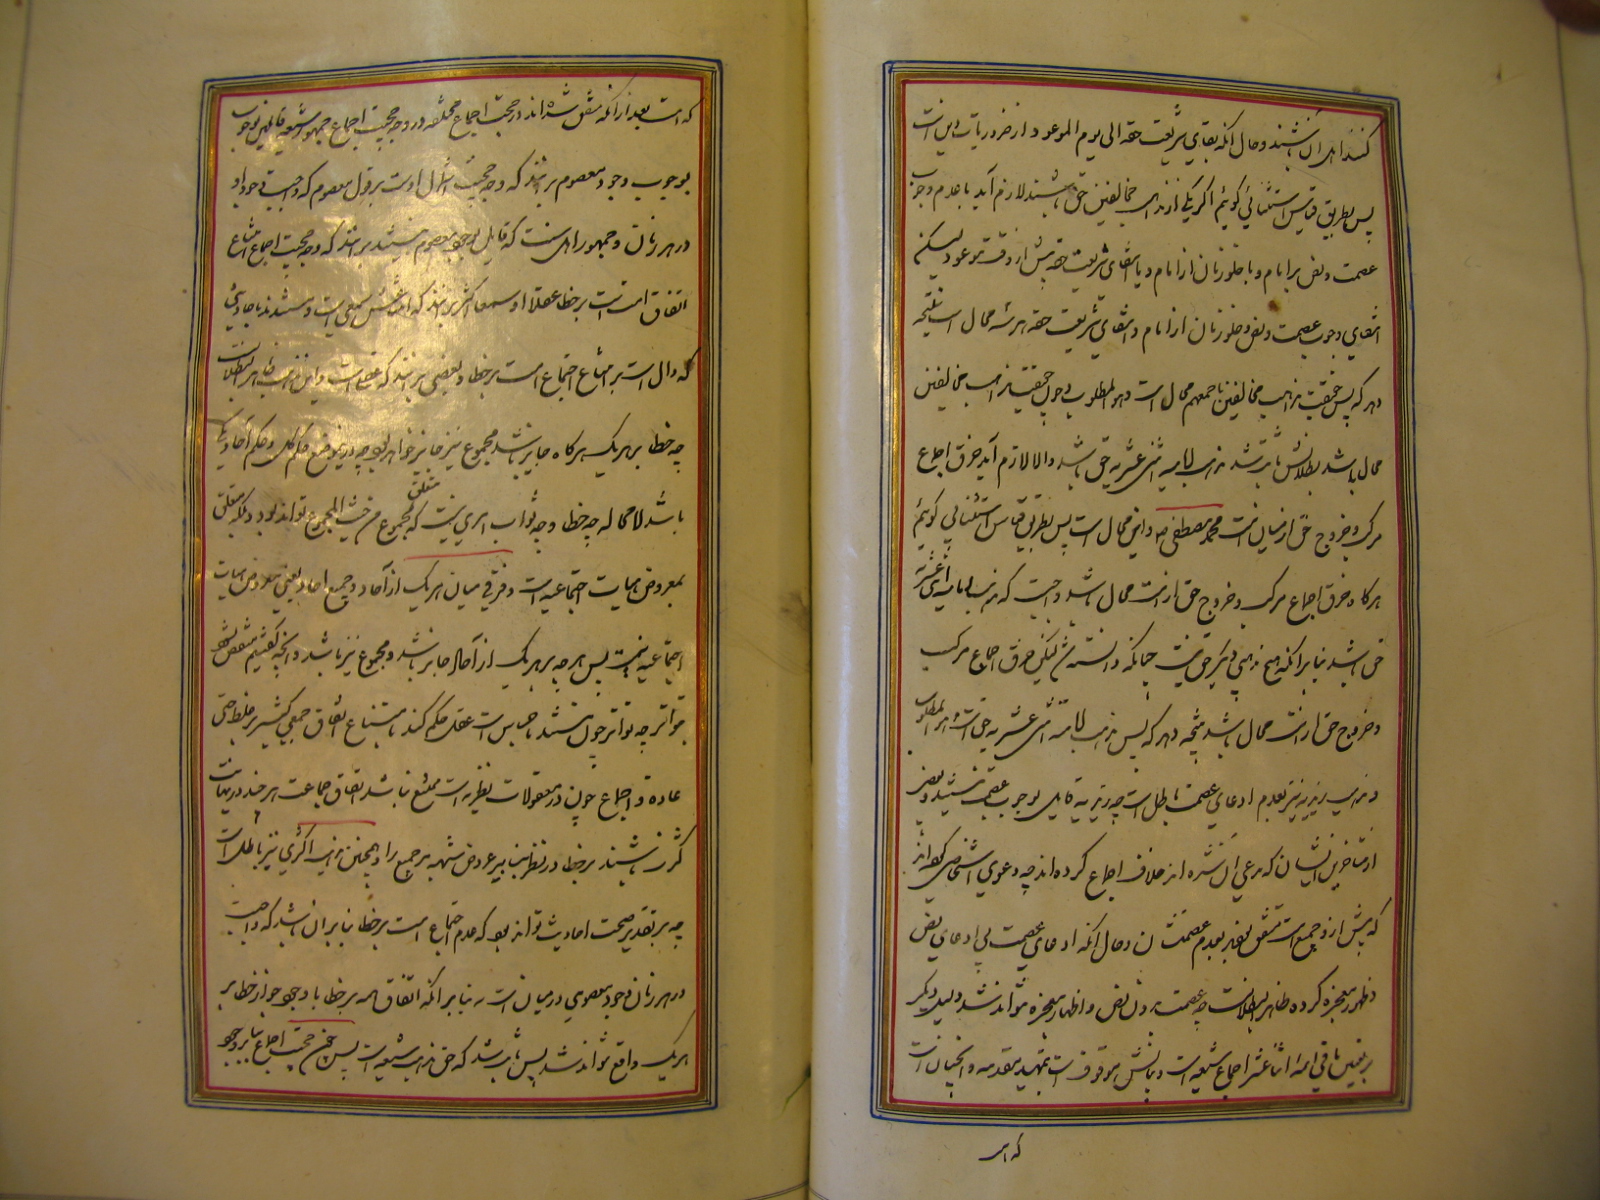 کنند اهل آن نباشند و حال آنکه بقای شریعت حقه الی یوم الموعود از ضروریات دین است
پس بطریق قیاس استثنائی گوئیم اگر یکی از مذاهب مخالفین حق باشند لازم آید یا عدم وجوب
عصمت و نص بر امام و یا خلو زمان از امام و یا انتفای شریعت حقه پیش از وقت موعود لیکن
انتفای وجوب عصمت و نص و خلو زمان از امام و انتفای شریعت حقه هر سه محال است نتیجه
دهد که پس حقیت مذاهب مخالفین باجمعهم محال است و هو المطلوب و چون حقیت مذاهب مخالفین
محال باشد بطلانش ثابت شد مذهب امامیه اثنی عشریه حق باشد و الا لازم آید خرق اجماع
مرکب و خروج حق از میان امت محمد مصطفی و این محال است پس بطریق قیاس استثنائی گوئیم
هرگاه خرق اجماع مرکب و خروج حق از امت محال باشد واجب است که مذهب امامیه اثنی عشریه
حق باشد بنا بر آنکه هیچ مذهبی دیگر حق نیست چنانکه دانسته شد لیکن خرق اجماع مرکب
و خروج حق از امت محال باشد نتیجه دهد که پس مذهب امامیه اثنی عشریه حق است و هو المطلوب
و مذهب زیدیه نیز بعدم ادعای عصمت باطل است چه زیدیه قایل بوجوب عصمت نیستند و بعضی
از متاخرین ایشان که مدعی آن شده اند خلاف اجماع کرده اند چه دعوی اشخاصی کرده اند
که پیش از و جمیع امت متفق بودند بعدم عصمتشان و حال آنکه ادعای عصمت بی ادعای نص
و ظهور معجزه کرده ظاهر البطلانست چه عصمت بدون نص و اظهار معجزه نتواند شد و دلیل دیگر
بر تعیین باقی ائمه اثنا عشر اجماع شیعه است و بیانش موقوف است بتمهید مقدمه و آنچنان است
که امت
که امت بعد از آنکه متفق شده اند در حجیت اجماع مختلفند در وجه حجیت اجماع جمهور شیعه قایلین بوجوب
بوجوب وجود معصوم برانند که وجه حجیت اشتمال اوست بر قول معصوم که واجب است وجود او
در هر زمان و جمهور اهل سنت که قایل بوجود معصوم نیستند برانند که وجه حجیت اجماع امتناع
اتفاق امت است بر خطا عقلا او سمعا اکثر برانند که امتناعش سمعی است و مستند باحادیثی
که دال است بر امتناع اجتماع امت بر خطا و بعضی برانند که عقلی است و این مذهب ظاهر البطلانست
چه خطا بر هر یک هرگاه جایز باشد مجموع نیز جایز خواهد بود چه در این موضع حکم کل و حکم آحاد یکی
باشد لا محاله چه خطا و چه ثواب امری نیست که متعلق مجموع من حیث المجموع تواند بود و بلکه متعلق
بمعروض هیات اجتماعیه است و فرقی میان هر یک از آحاد و جمیع احاد یعنی معروض هیات
اجتماعیه نیست پس هر چه بر هر یک از آحاد جایز باشد و مجموع نیز باشد و آنچه گفتیم منتقض نشود
بتواتر چه تواتر چون مستند باحساس است عقل حکم کند بامتناع اتفاق جمعی کثیر بر غلط حتی
عادة و اجماع چون در معقولات نظریه است ممتنع نباشد اتفاق جماعت هر چند در نهایت
کثرت باشند بر خطا در نظر بسبب عروض شبهه بر جمیع را و همچنین مذهب اکثری نیز باطل است
چه بر تقدیر صحت احادیث تواند بود که عدم اجتماع امت بر خطا بنا بر ان باشد که واجب است
در هر زمان وجود معصومی در میان امت نه بنا بر آنکه اتفاق همه بر خطا با وجود جواز خطا بر
هر یک واقع نتواند شد پس ثابت شد که حق مذهب شیعه است پس حجیت اجماع بنا بر وجود